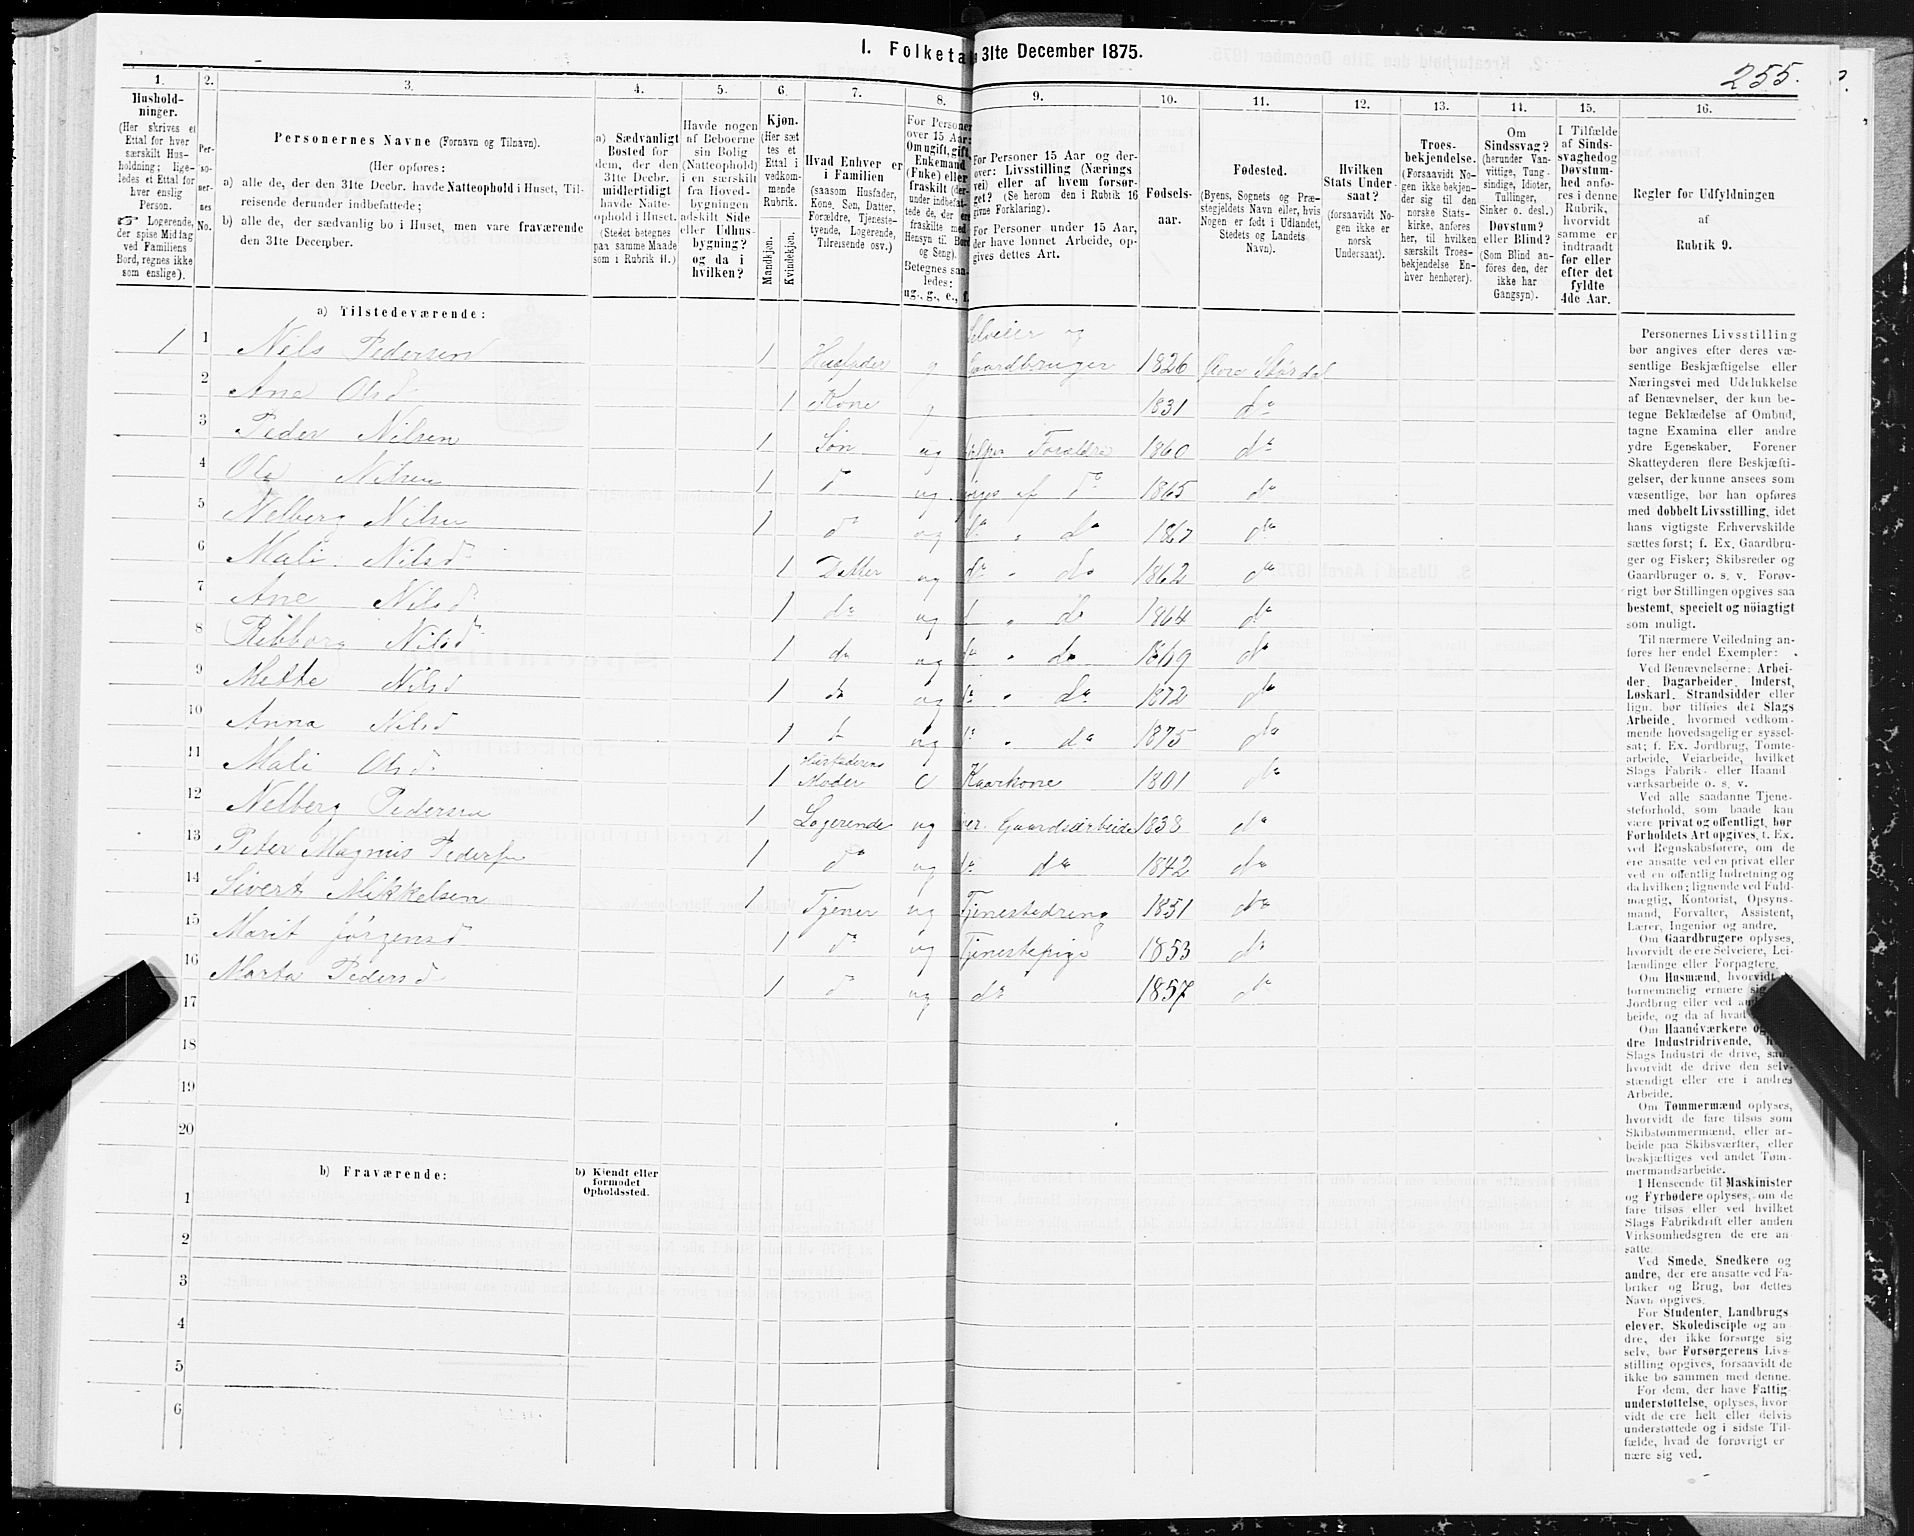 I. Folketa 31te December 1875.
255.
1. 2. 3. 4. 5. 6. 7. 8. 9. 10. 11. 12. 13. 14. 15. 16.
Hushold-
ninger.
(Her skrives et
Ettal for hver
særskilt Hus-
holdning; lige-
ledes et Ettal for
hver enslig
Person.
☞ Logerende,
der spise Middag
ved Familiens
Bord, regnes ikke
som enslige).
Per-
so-
ner-
nes
No.
Personernes Navne (Fornavn og Tilnavn).
(Her opføres:
a) alle de, der den 31te Decbr. havde Natteophold i Huset, Til-
reisende derunder indbefattede;
b) alle de, der sædvanlig bo i Huset, men vare fraværende
den 31te December.
a) Sædvanligt
Bosted for
dem, der den
31te Decbr.
midlertidigt
havde Natte-
ophold i Huset.
(Stedet betegnes
paa samme Maade
som i Rubrik 11.)
Havde nogen
af Beboerne
sin Bolig
(Natteophold)
i en særskilt
fra Hoved-
bygningen
adskilt Side
eller Udhus-
bygning?
og da i
hvilken?
Kjøn.
(Her sæt
tes et
Ettal i
vedkom-
mende
Rubrik.
Mandkjøn.
Kvindekjøn.
Hvad Enhver er
i Familien
(saasom Husfader,
Kone, Søn, Datter,
Forældre, Tjeneste-
tyende, Logerende,
Tilreisende osv.)
For Personer
over 15 Aar:
Om ugift, gift,
Enkemand
(Enke) eller
fraskilt (der-
under indbefat-
tede de, der ere
fraskilte med
Hensyn til Bord
og Seng).
Betegnes saa-
ledes:
ug., g., e., f.
For Personer 15 Aar og der-
over: Livsstilling (Nærings
vei) eller af hvem forsør-
get? (Se herom den i Rubrik 16
givne Forklaring).
For Personer under 15 Aar,
der have lønnet Arbeide, op-
gives dettes Art.
Fødsels-
aar.
Fødested.
(Byens, Sognets og Præ-
stegjeldets Navn eller, hvis
Nogen er født i Udlandet,
Stedets og Landets
Navn).
Hvilken
Stats Under-
saat?
(forsaavidt No-
gen ikke er
norsk
Undersaat).
Troes-
bekjendelse.
(Forsaavidt No-
gen ikke bekjen-
der sig til den
norske Stats-
kirke, anføres
her, til hvilken
særskilt Troes-
bekjendelse En-
hver henhører).
Om
Sindssvag?
(herunder Van-
vittige, Tung-
sindige, Idioter,
Tullinger,
Sinker o. desl.)
Døvstum?
eller Blind?
(Som Blind an-
føres den, der
ikke har
Gangsyn).
I Tilfælde
af Sinds-
svaghed og
Døvstum-
hed anfø-
res i denne
Rubrik,
hvorvidt
samme er
indtraadt
før eller
efter det
fyldte
4de Aar.
Regler for Udfyldningen
af
Rubrik 9.
a) Tilstedeværende:
Selveier og
1 1 Nels Pedersen 1 Husfader g Gaardbruger 1826 Øvre Størdal
2 Ane Olsd 1 Kone g 1831 da
3 Peder Nilsen 1 Søn ug hjelper Forældre 1860 da
4 Ole Nilsen 1 da ug forsørges af da 1865 da
5 Nelberg Nilsen 1 da ug da " da 1867 da
6 Mali Nilsd 1 Datter ug da " da 1862 da
7 Ane Nilsd 1 da ug " da 1864 da
8 Nilsd 1 da ug da " da 1869 da
9 Mette Nilsd 1 da ug da " da 1872 da
10 Anna Nilsd 1 ug da " da 1875 da
Husfaderens
11 Mali Olsd 1 Moder e Kaarkone 1801 da
12 Nelberg Pedersen 1 Logerende ug Gaardsarbeide 1838 da
13 Peter Magnus Pedersen 1 da ug da da 1842 da
14 Sivert Mikkelsen 1 Tjener ug Tjenestedreng 1851 da
15 Marit Jørgensd 1 da ug Tjenestepige 1853 da
16 Marta Pedersd 1 da ug da 1857 da
17
18
19
20
b) Fraværende:
b) Kjendt eller
formodet
Opholdssted.
1
2
3
4
5
6
Personernes Livsstilling
bør angives efter deres væ-
sentlige Beskjæftigelse eller
Næringsvei med Udelukkelse
af Benævnelser, der kun be-
tegne Beklædelse af Ombud,
tagne Examina eller andre
ydre Egenskaber. Forener
Skatteyderen flere Beskjæfti-
gelser, der kunne ansees som
væsentlige, bør han opføres
med dobbelt Livsstilling, idet
hans vigtigste Erhvervskilde
sættes først; f. Ex. Gaardbru-
ger og Fisker; Skibsreder og
Gaardbruger o. s. v. Forøv-
rigt bør Stillingen opgives saa
bestemt, specielt og nøiagtigt
som muligt.
Til nærmere Veiledning an-
føres her endel Exempler:
Ved Benævnelserne: Arbei-
der, Dagarbeider, Inderst,
Løskarl, Strandsidder eller
lign. bør tilføies det Slags
Arbeide, hvormed vedkom-
mende hovedsagelig er syssel-
sat; f. Ex. Jordbrug, Tomte-
arbeide, Veiarbeide, hvilket
Slags Fabrik- eller Haand
værksarbeide o. s. v.
Ved alle saadanne Tjene-
steforhold, som baade kan
være privat og offentligt, bør
Forholdets Art opgives, t. Ex.
ved Regnskabsførere, om de
ere ansatte ved en privat eller
ved en offentlig Indretning og
da hvilken; lignende ved Fuld-
mægtig, Kontorist, Opsyns-
mand, Forvalter, Assistent,
Lærer, Ingeniør og andre.
Om Gaardbrugere oplyses,
hvorvidt de ere Selveiere, Lei-
lændinge eller Forpagtere.
Om Husmænd, hvorvidt
fornemmelig ernære sig
Jordbrug eller ved an
beide, og da af hvad
Om Haandværkere og
dre Industridrivende,
Slags Industri de drive, sam
hvorvidt de drive den selv-
stændigt eller ere i andres
Arbeide.
Om Tømmermænd oplyses,
hvorvidt de fare tilsøs som
Skibstømmermænd, eller ar-
beide paa Skibsværfter, eller
beskjæftiges ved andet Tøm-
mermandsarbeide.
I Henseende til Maskinister
og Fyrbødere oplyses, om de
fare tilsøs eller ved hvilket
Slags Fabrikdrift eller anden
Virksomhedsgren de ere an-
satte.
Ved Smede, Snedkere og
andre, der ere ansatte ved Fa-
briker og Brug, bør dettes
Navn opgives.
For Studenter, Landbrugs
elever, Skoledisciple og an-
dre, der ikke forsørge sig
selv, bør Forsørgerens Livs-
stilling opgives, forsaavidt de
ikke bo sammen med denne.
For dem, der have Fattig-
understøttelse, oplyses, hvor
vidt de ere helt eller delvis
understøttede og i sidste Til-
fælde, hvad de forøvrigt er
nære sig ved.